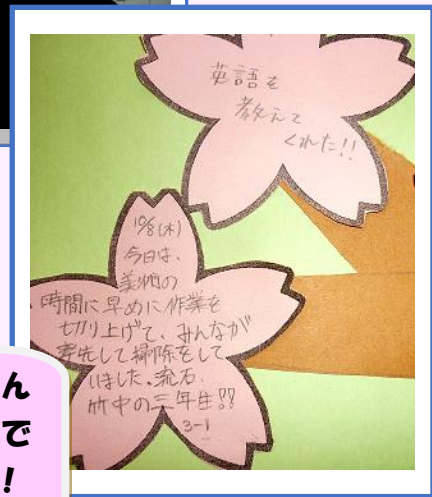 英語を
教えて
くれた!!
10/8(木)
今日は、
美術の
時間に早めに作業を
切り上げて、みんなが
率先して掃除をして
いました。流石、
竹中の三年生!!
3-1
ん
で
!